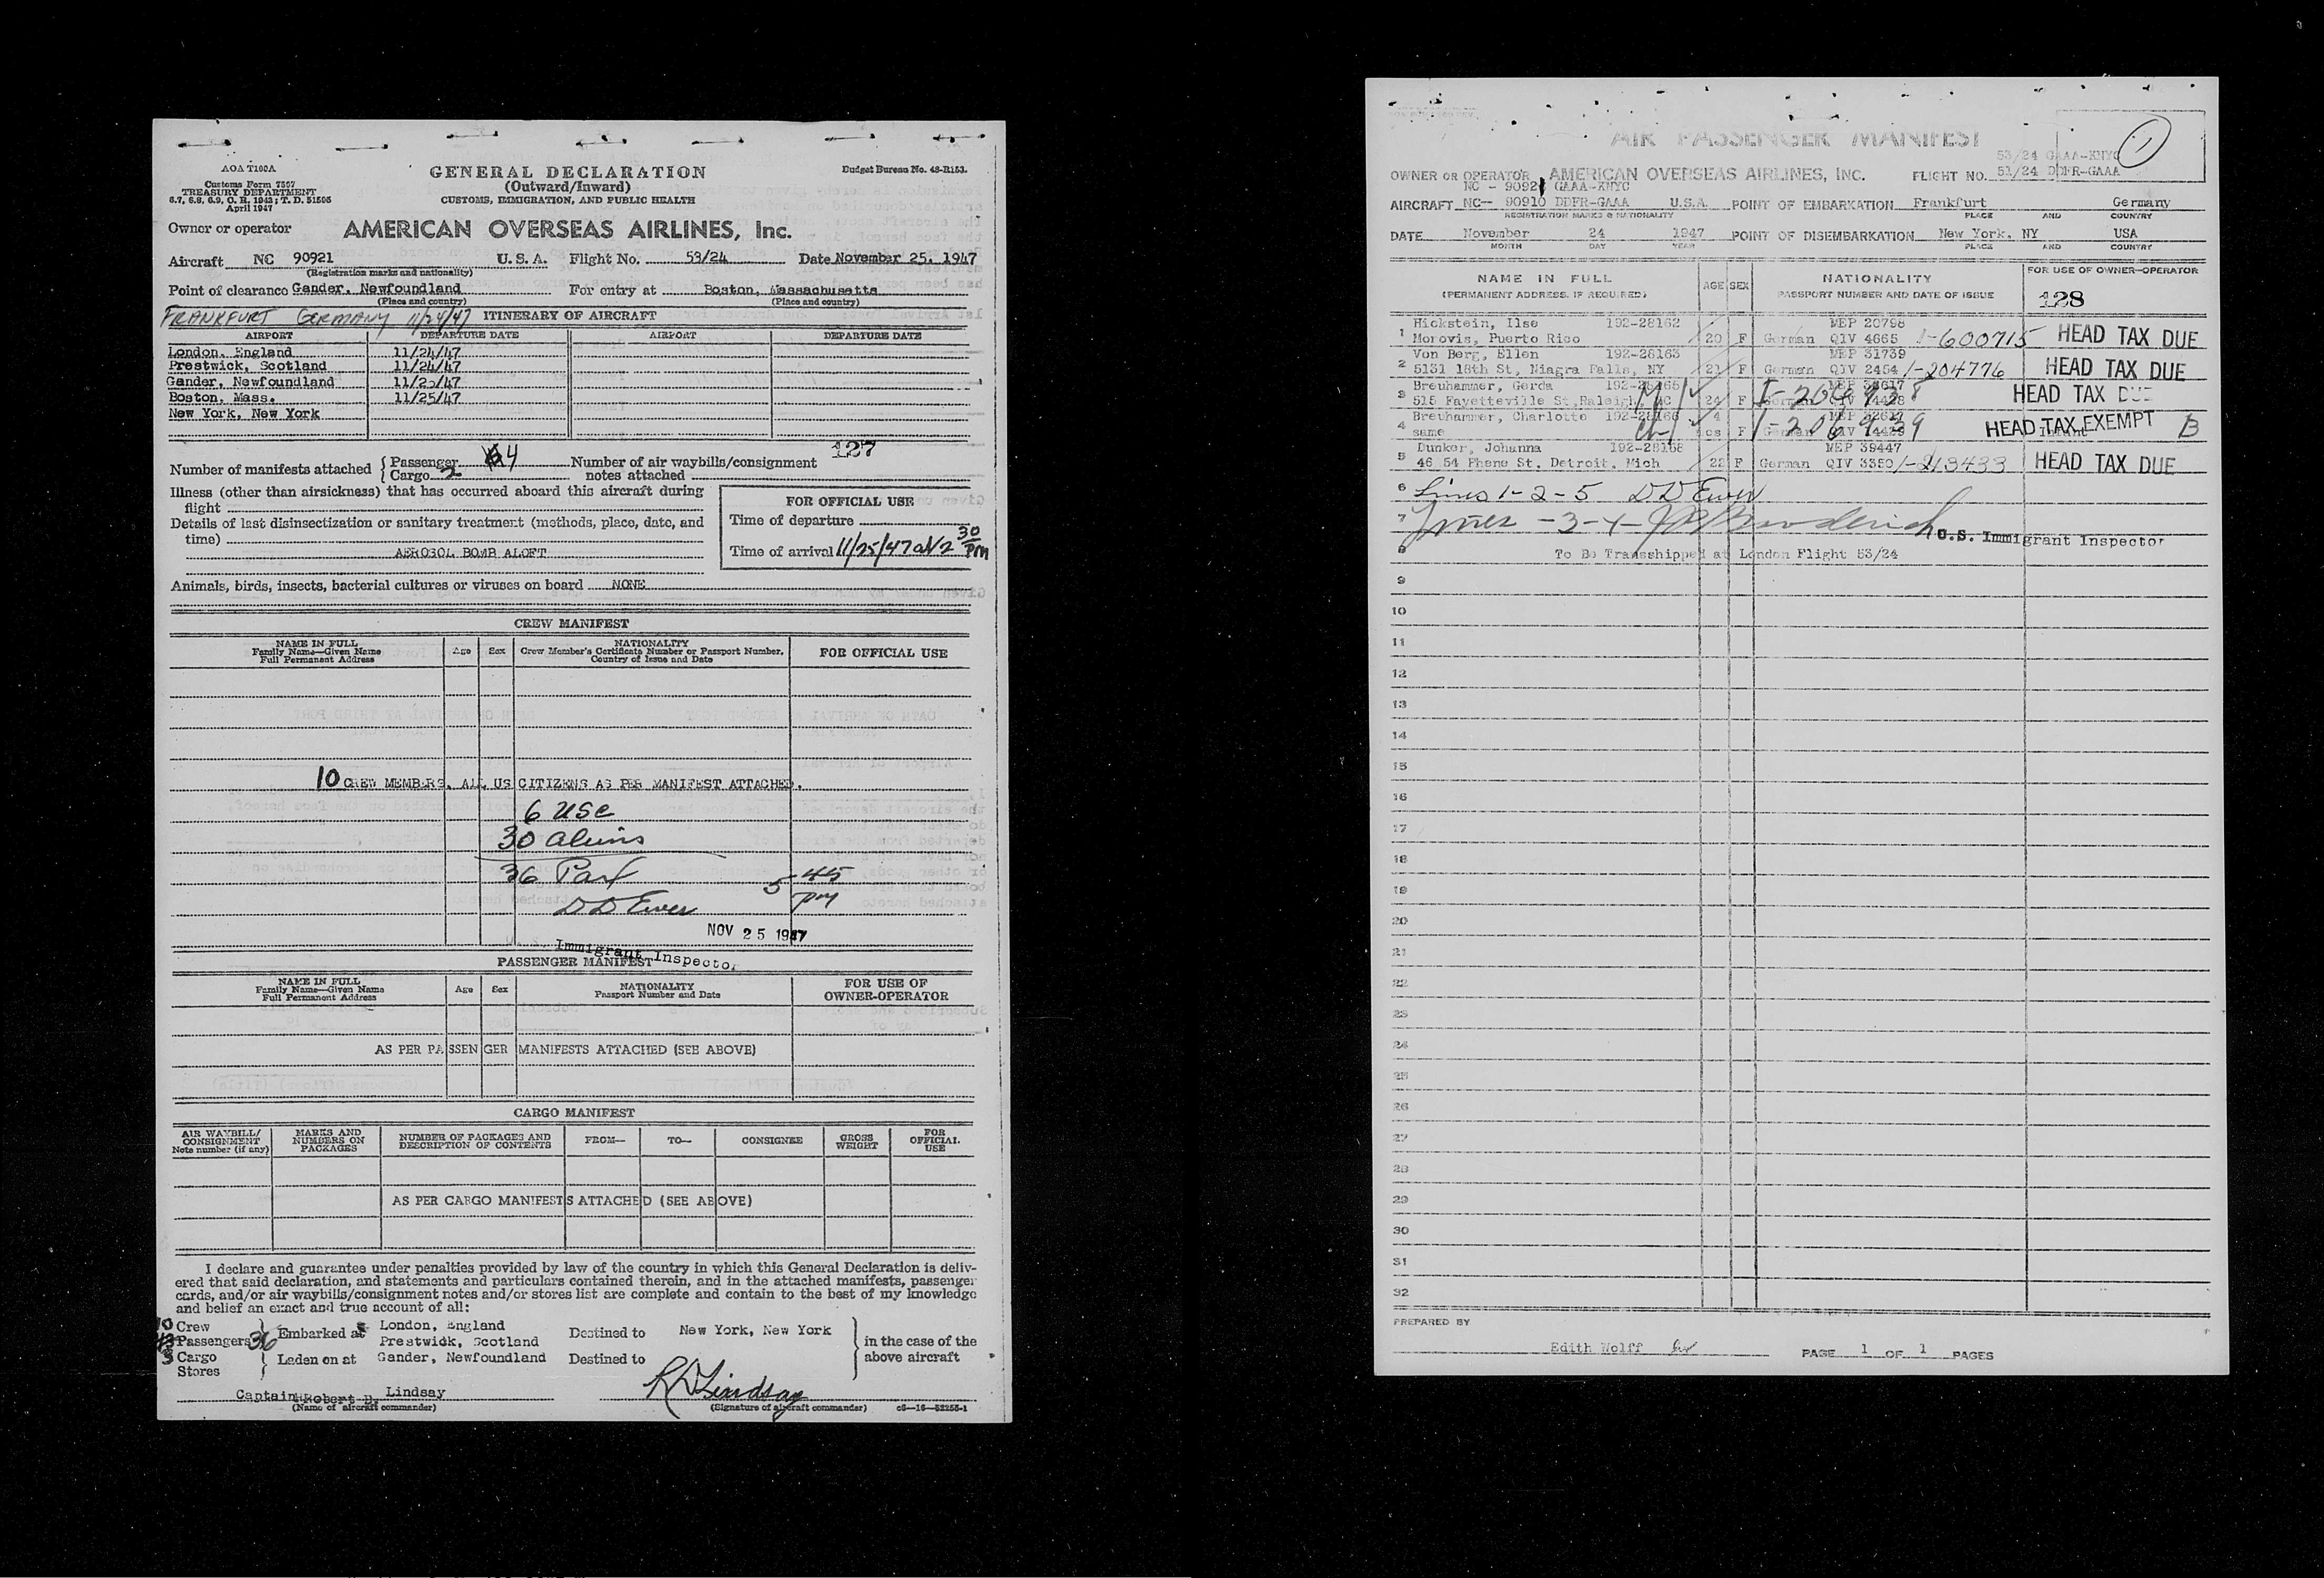 AOA T160A
Customs Form 7507
TREASURY DEPARTMENT
6.7, 6.8, 6.9, C. R. 1943; T. D. 51505
April 1947
GENERAL DECLARATION
(Outward/Inward)
CUSTOMS, IMMIGRATION, AND PUBLIC HEALTH
Budget Bureau No. 48-R153.
Owner or operator AMERICAN OVERSEAS AIRLINES, Inc.
Aircraft NC 90921 U. S. A. Flight No. 53/24 Date November 25, 1947
(Registration marks and nationality)
Point of clearance Gander, Newfoundland For entry at Boston, Massachusetts
(Place and country) (Place and country)
FRANKFURT GERMANY 11/24/47 ITINERARY OF AIRCRAFT
AIRPORT DEPARTURE DATE AIRPORT DEPARTURE DATE
London, England 11/24/47
Prestwick, Scotland 11/24/47
Gander, Newfoundland 11/25/47
Boston, Mass. 11/25/47
New York, New York
127
Number of manifests attached { Passenger 4 Number of air waybills/consignment
Cargo 2 notes attached
Illness (other than airsickness) that has occurred aboard this aircraft during
flight
Details of last disinsectization or sanitary treatment (methods, place, date, and
time)
AEROSOL BOMB ALOFT
FOR OFFICIAL USE
Time of departure
Time of arrival 11/25/47 at 2 30 pm
Animals, birds, insects, bacterial cultures or viruses on board NONE
CREW MANIFEST
NAME IN FULL
Family Name—Given Name
Full Permanent Address
Age Sex
NATIONALITY
Crew Member's Certificate Number or Passport Number,
Country of Issue and Date
FOR OFFICIAL USE
10 CREW MEMBERS, ALL US CITIZENS AS PER MANIFEST ATTACHED.
6 USC
30 aliens
36 Pax
5 45 pm
DD Ewer
NOV 25 1947
Immigrant Inspector
PASSENGER MANIFEST
NAME IN FULL
Family Name—Given Name
Full Permanent Address
Age Sex
NATIONALITY
Passport Number and Date
FOR USE OF
OWNER-OPERATOR
AS PER PASSENGER MANIFESTS ATTACHED (SEE ABOVE)
CARGO MANIFEST
AIR WAYBILL/
CONSIGNMENT
Note number (if any)
MARKS AND
NUMBERS ON
PACKAGES
NUMBER OF PACKAGES AND
DESCRIPTION OF CONTENTS
FROM— TO— CONSIGNEE
GROSS
WEIGHT
FOR
OFFICIAL
USE
AS PER CARGO MANIFESTS ATTACHED (SEE ABOVE)
I declare and guarantee under penalties provided by law of the country in which this General Declaration is deliv-
ered that said declaration, and statements and particulars contained therein, and in the attached manifests, passenger
cards, and/or air waybills/consignment notes and/or stores list are complete and contain to the best of my knowledge
and belief an exact and true account of all:
10 Crew
Passengers 36
Cargo
Stores
Embarked at London, England
Prestwick, Scotland
Laden on at Gander, Newfoundland
Destined to New York, New York
Destined to
in the case of the
above aircraft
Captain Robert D. Lindsay
(Name of aircraft commander)
R D Lindsay
(Signature of aircraft commander) c6—16—52255-1
AIR PASSENGER MANIFEST
1
53/24 GAAA-KNYC
OWNER OR OPERATOR AMERICAN OVERSEAS AIRLINES, INC. FLIGHT NO. 51/24 DDFR-GAAA
NC - 90921 GAAA-KNYC
AIRCRAFT NC-- 90910 DDFR-GAAA U.S.A. POINT OF EMBARKATION Frankfurt Germany
REGISTRATION MARKS & NATIONALITY PLACE AND COUNTRY
DATE November 24 1947 POINT OF DISEMBARKATION New York, NY USA
MONTH DAY YEAR PLACE AND COUNTRY
NAME IN FULL
(PERMANENT ADDRESS, IF REQUIRED)
AGE SEX
NATIONALITY
PASSPORT NUMBER AND DATE OF ISSUE
FOR USE OF OWNER-OPERATOR
128
Hickstein, Ilse 192-28162 MEP 20798
1 Morovis, Puerto Rico 20 F German QIV 4665 1-600715 HEAD TAX DUE
Von Berg, Ellen 192-28163 MEP 31739
2 5131 18th St, Niagra Falls, NY 21 F German QIV 2454 1-204776 HEAD TAX DUE
Breuhammer, Gerda 192-28165
3 515 Fayetteville St, Raleigh, NC 24 F German HEAD TAX DUE
Breuhammer, Charlotte 192-28166 4
4 same mos F 1-206939 Infant HEAD TAX EXEMPT B
Dunker, Johanna 192-28168 MEP 39447
5 46 54 Phene St, Detroit, Mich 22 F German QIV 3350 1-213433 HEAD TAX DUE
6 Lines 1-2-5 DD Ewer
7 Lines -3-4- U.S. Immigrant Inspector
8 To Be Transshipped at London Flight 53/24
9
10
11
12
13
14
15
16
17
18
19
20
21
22
23
24
25
26
27
28
29
30
31
32
PREPARED BY
Edith Wolff
PAGE 1 OF 1 PAGES